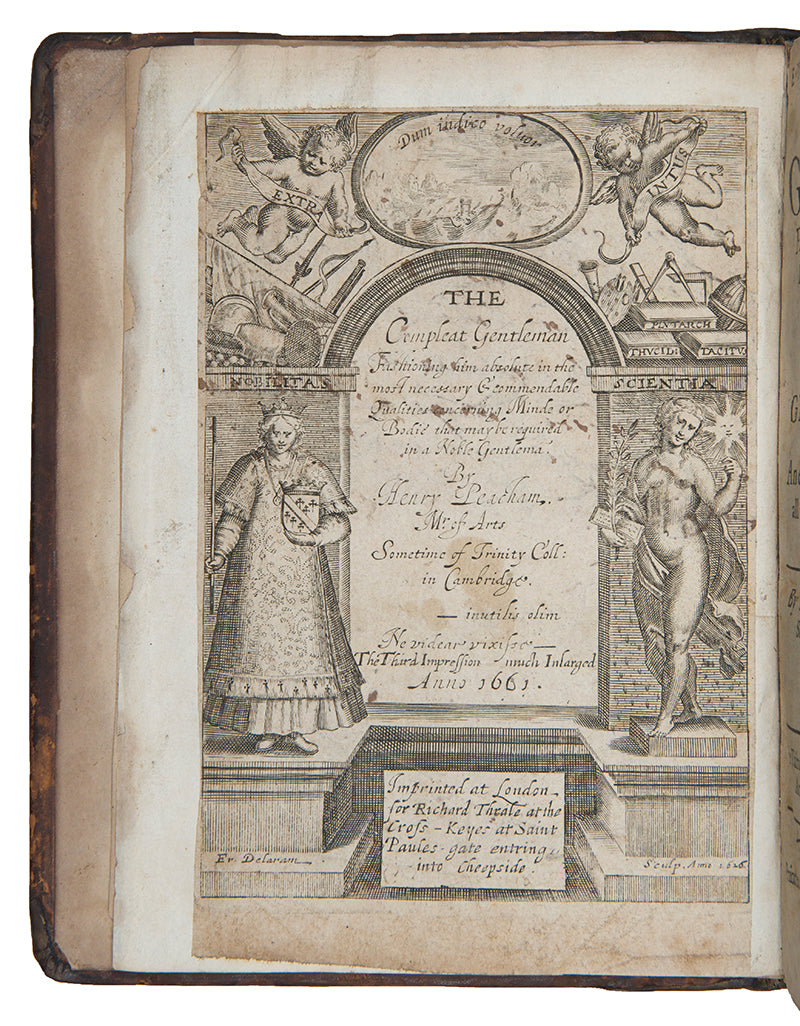 Dum iudico volvor
EXTRA
INTUS
PLVTARCH
THVCIDI
TACITV
NOBILITAS
SCIENTIA
THE
Compleat Gentleman
Fashioning him absolute in the
most necessary & commendable
Qualities concerning Minde or
Bodie that may be required
in a Noble Gentlemā.
By
Henry Peacham,
Mr. of Arts
Sometime of Trinity Coll:
in Cambridge.
— inutilis olim
Ne videar vixisse —
The Third Impression much Inlarged
Anno 1661.
Imprinted at London
for Richard Thrale at the
Cross-Keyes at Saint
Paules gate entring
into Cheepside.
Fr. Delaram
Sculp. Anno